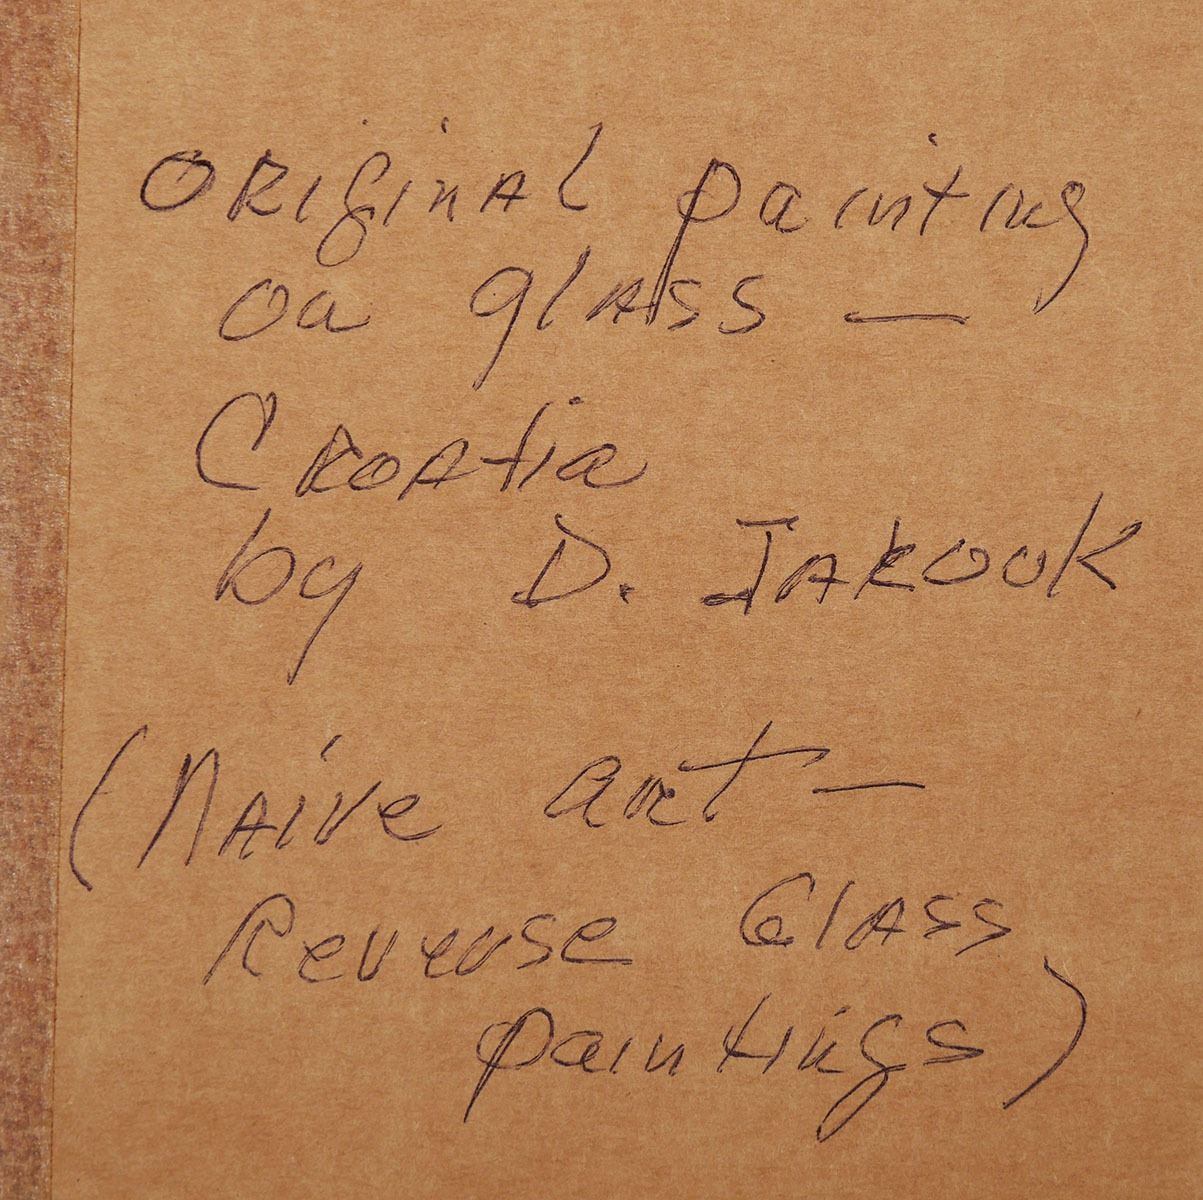 ORiginAl painting
on glAss —
CROAtia
by D. JAKOUK
(NAive art —
Reverse GlAss
paintings)